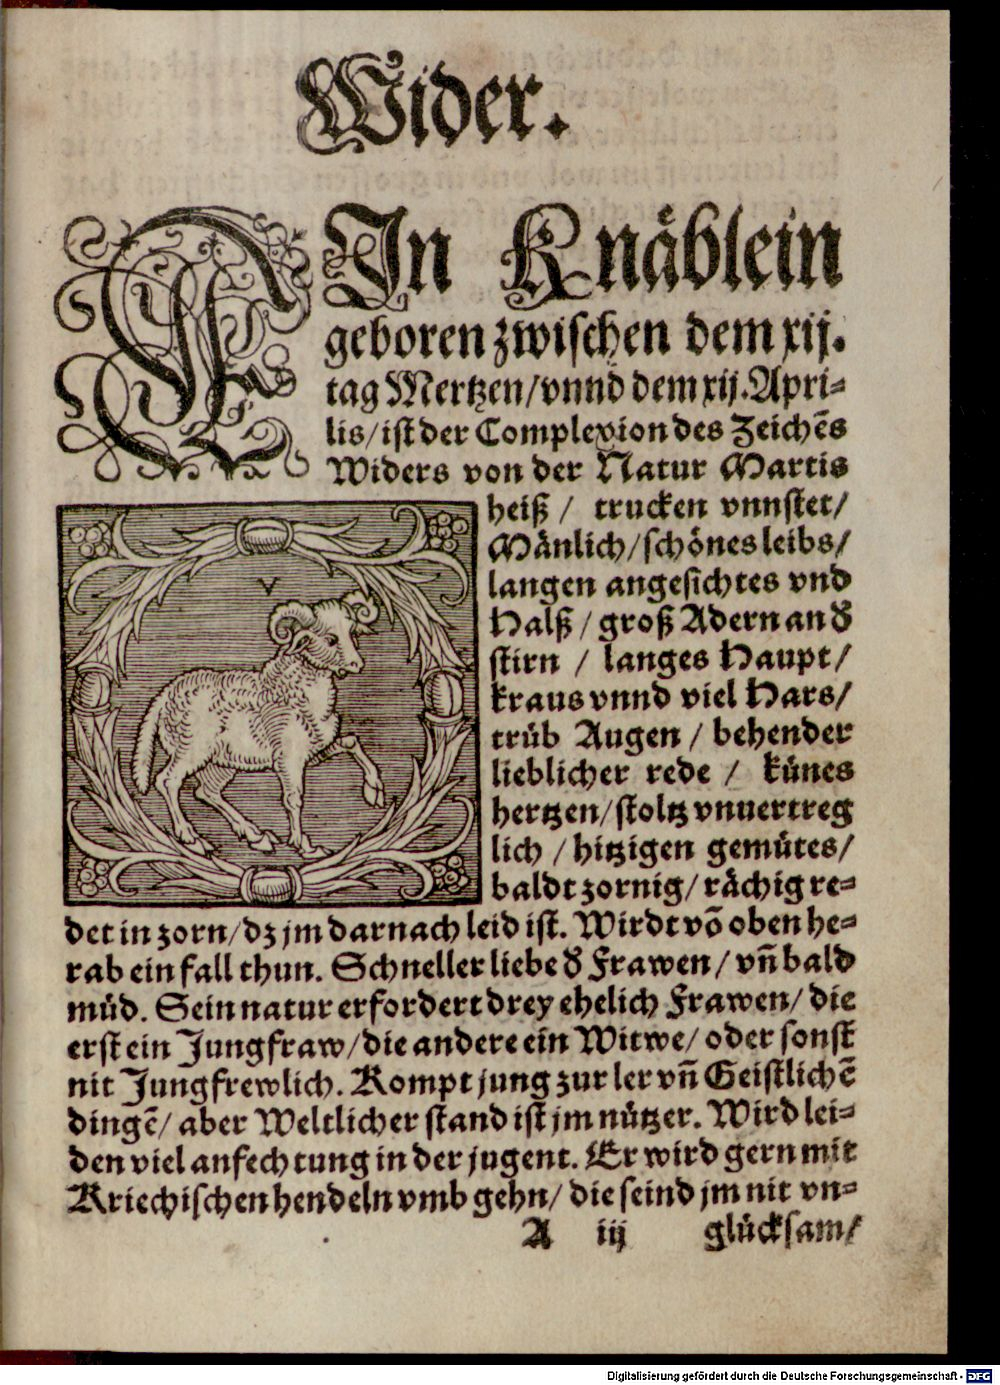 Wider.
EIn Knäblein
geboren zwischen dem xij.
tag Mertzen/vnnd dem xij.Apri⸗
lis/ist der Complexion des Zeichẽs
Widers von der Natur Martis
heiß / trucken vnnstet/
Mänlich/schönes leibs/
langen angesichtes vnd
Halß / groß Adern an d̕
stirn / langes Haupt/
kraus vnnd viel Hars/
trüb Augen / behender
lieblicher rede / künes
hertzen/stoltz vnuertreg
lich / hitzigen gemütes/
baldt zornig/ rächig re⸗
det in zorn/dz jm darnach leid ist. Wirdt võ oben he⸗
rab ein fall thun. Schneller liebe d̕ Frawen/ vñ bald
müd. Sein natur erfordert drey ehelich Frawen/ die
erst ein Jungfraw/die andere ein Witwe/ oder sonst
nit Jungfrewlich. Kompt jung zur ler vñ Geistlichẽ
dingẽ/ aber Weltlicher stand ist jm nützer. Wird lei⸗
den viel anfechtung in der jugent. Er wird gern mit
Kriechischen hendeln vmb gehn/ die seind jm nit vn⸗
A iij glücksam/
Digitalisierung gefördert durch die Deutsche Forschungsgemeinschaft - DFG